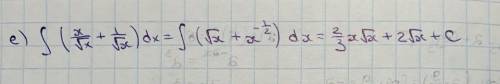 e) ∫ (x/√x + 1/√x) dx = ∫ (√x + x^(-1/2)) dx = 2/3 x√x + 2√x + C